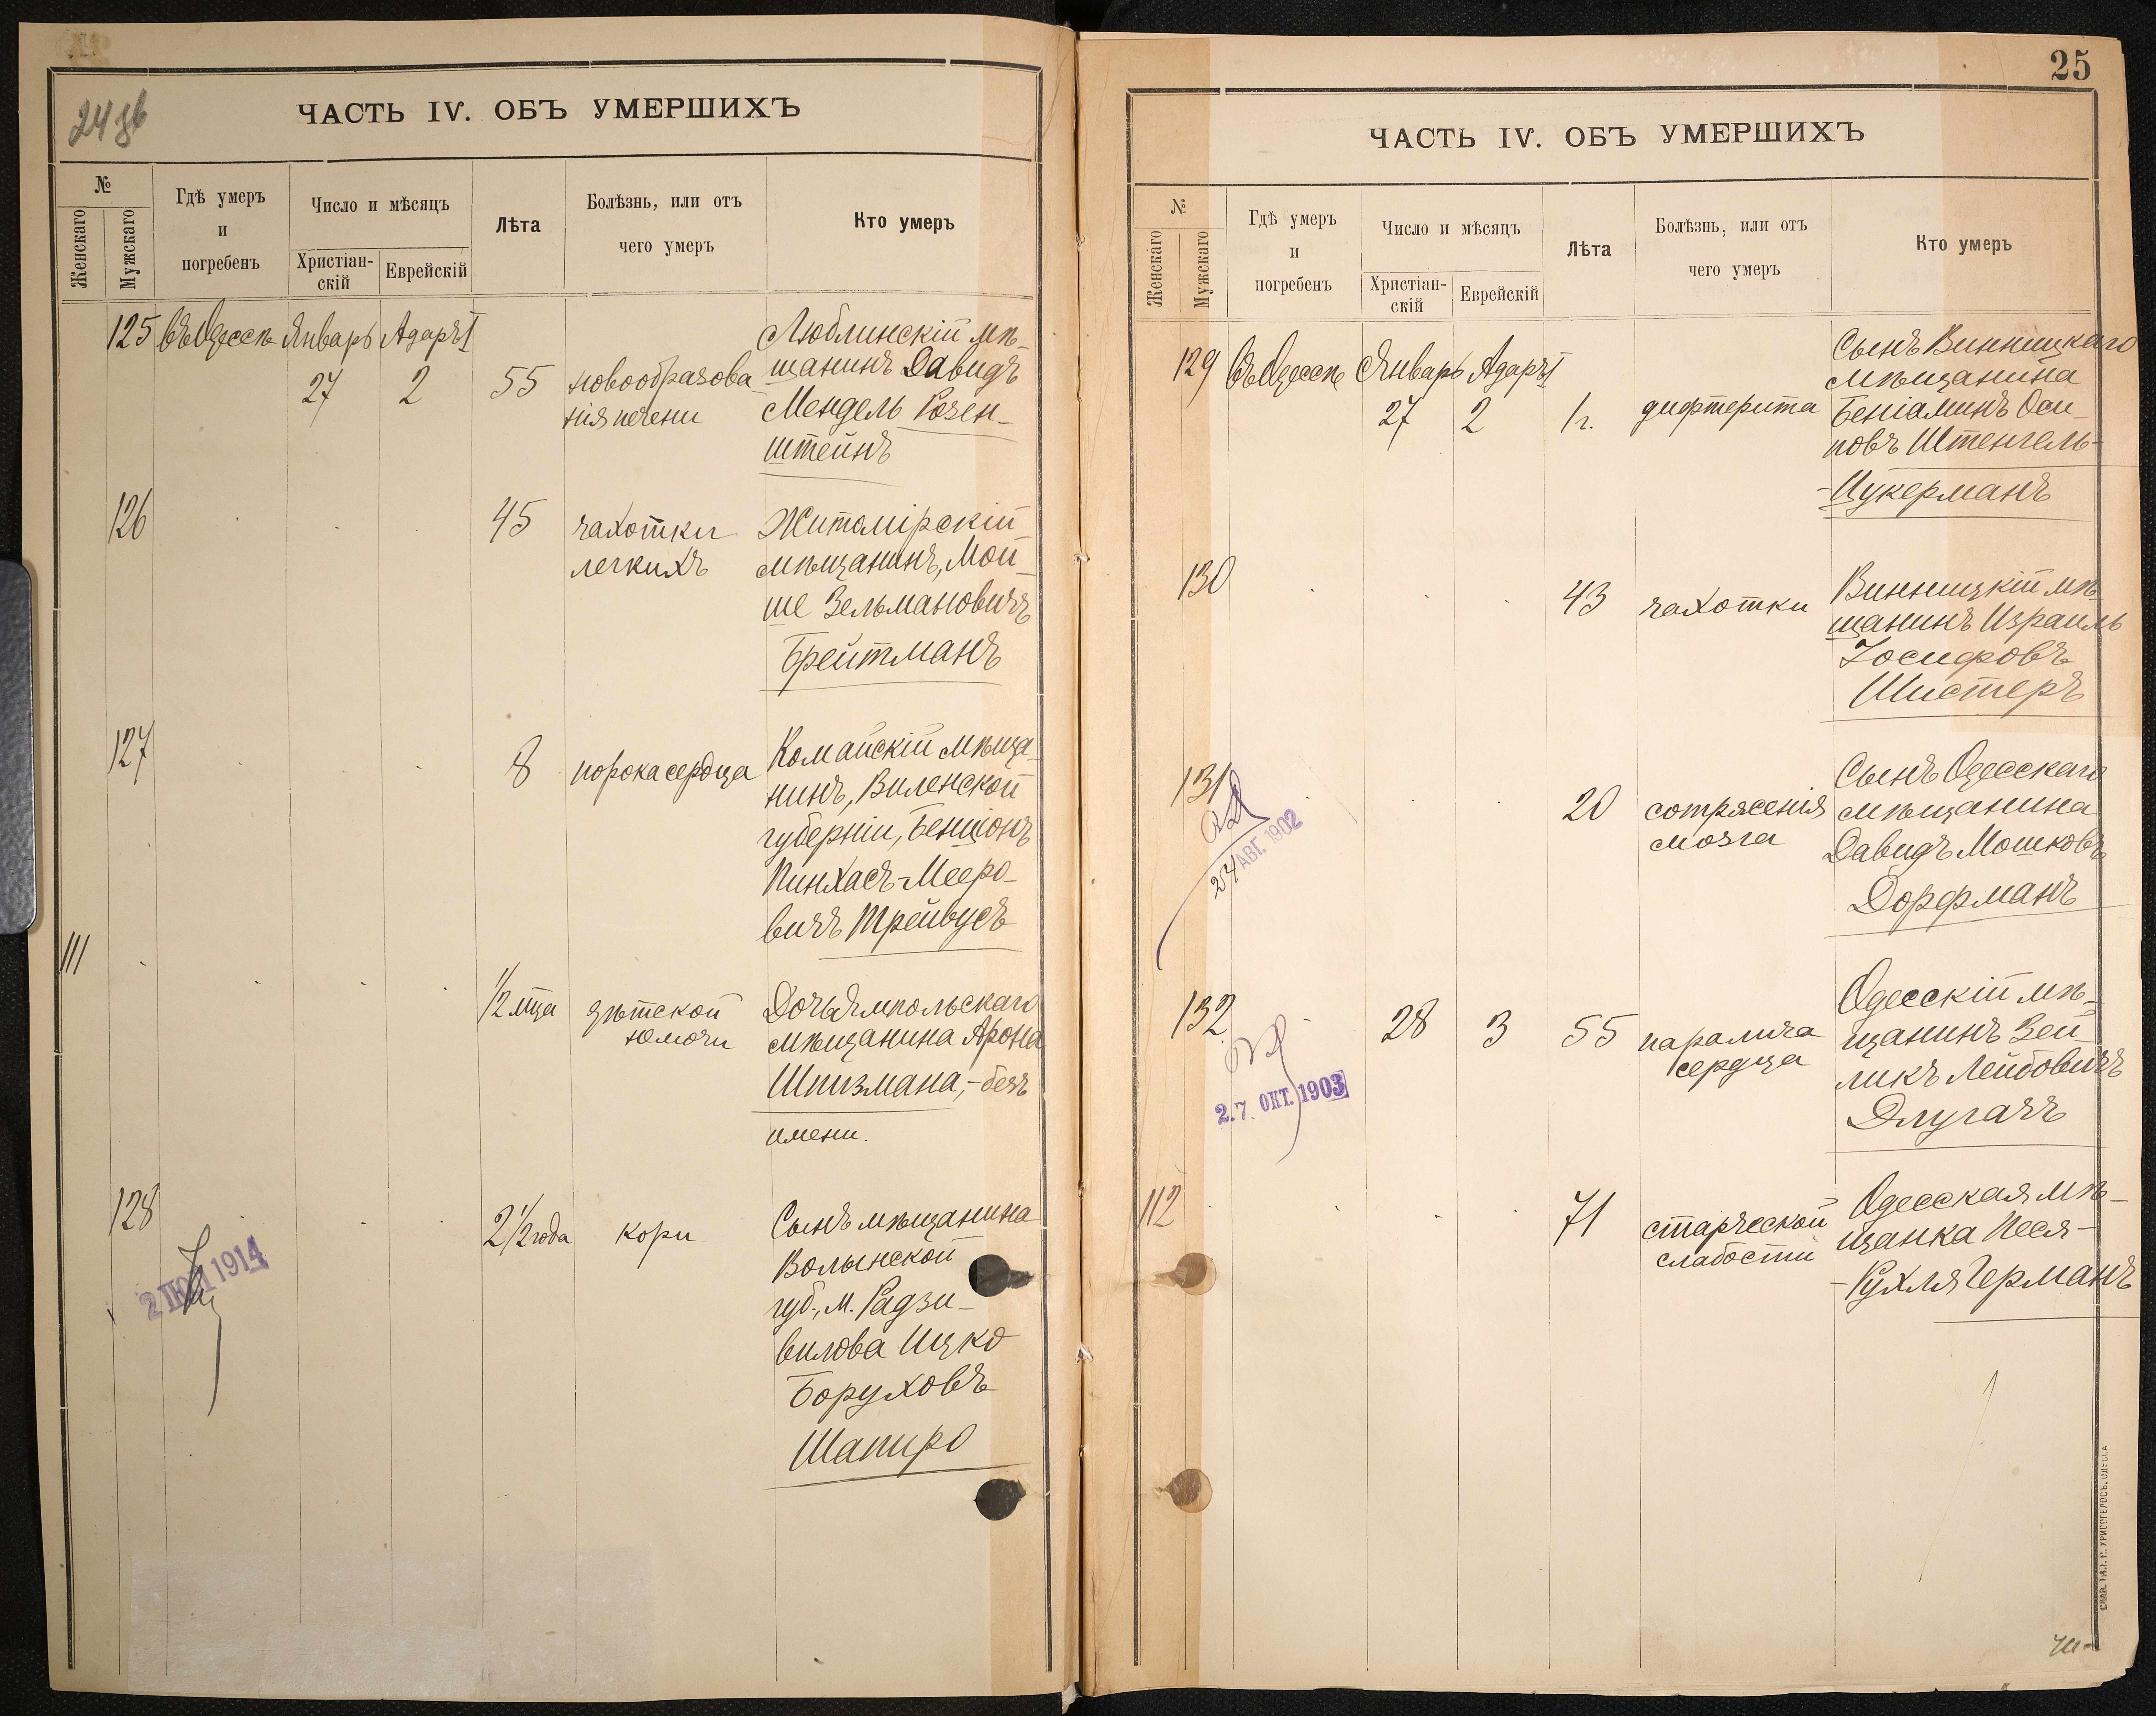 24 об
ЧАСТЬ IV. ОБЪ УМЕРШИХЪ
№
Женскаго
Мужскаго
Гдѣ умеръ
и
погребенъ
Число и мѣсяцъ
Христіан-
скій
Еврейскій
Лѣта
Болѣзнь, или отъ
чего умеръ
Кто умеръ
125 въ Одессѣ Январь Адаръ I
27 2 55 новообразова
нія печени
Люблинскій мѣ-
щанинъ Давидъ
Мендель Розен-
штейнъ
126 45 чахотки
легкихъ
Житомірскій
мѣщанинъ, Мой-
ше Зельмановичъ
Брейтманъ
127 8 порока сердца
Комайскій мѣща-
нинъ, Виленской
губерніи, Бенціонъ
Пинхасъ-Мееро-
вичъ Трейвусъ
111 1/2 мца дѣтской
немочи
Дочь Ямпольскаго
мѣщанина Арона
Шпизмана,- безъ
имени.
128 2 1/2 года кори
Сынъ мѣщанина
Волынской
губ., м. Радзи-
вилова Ицко
Боруховъ
Шапиро
1914
25
ЧАСТЬ IV. ОБЪ УМЕРШИХЪ
№
Женскаго
Мужскаго
Гдѣ умеръ
и
погребенъ
Число и мѣсяцъ
Христіан-
скій
Еврейскій
Лѣта
Болѣзнь, или отъ
чего умеръ
Кто умеръ
129 Въ Одессѣ Январь Адаръ I
27 2 1 г. дифтерита
Сынъ Винницкаго
мѣщанина
Беніаминъ Оси-
повъ Штенгель-
-Цукерманъ
130 43 чахотки
Винницкій мѣ-
щанинъ Израиль
Іосифовъ
Шистеръ
131 20 сотрясенія
мозга
Сынъ Одесскаго
мѣщанина
Давидъ Мошковъ
Дорфманъ
24 АВГ. 1902
132 28 3 55 паралича
сердца
Одесскій мѣ-
щанинъ Зей-
ликъ Лейбовичъ
Длугачъ
2.7. ОКТ. 1903
112 71 старческой
слабости
Одесская мѣ-
щанка Песя-
-Рухля Германъ